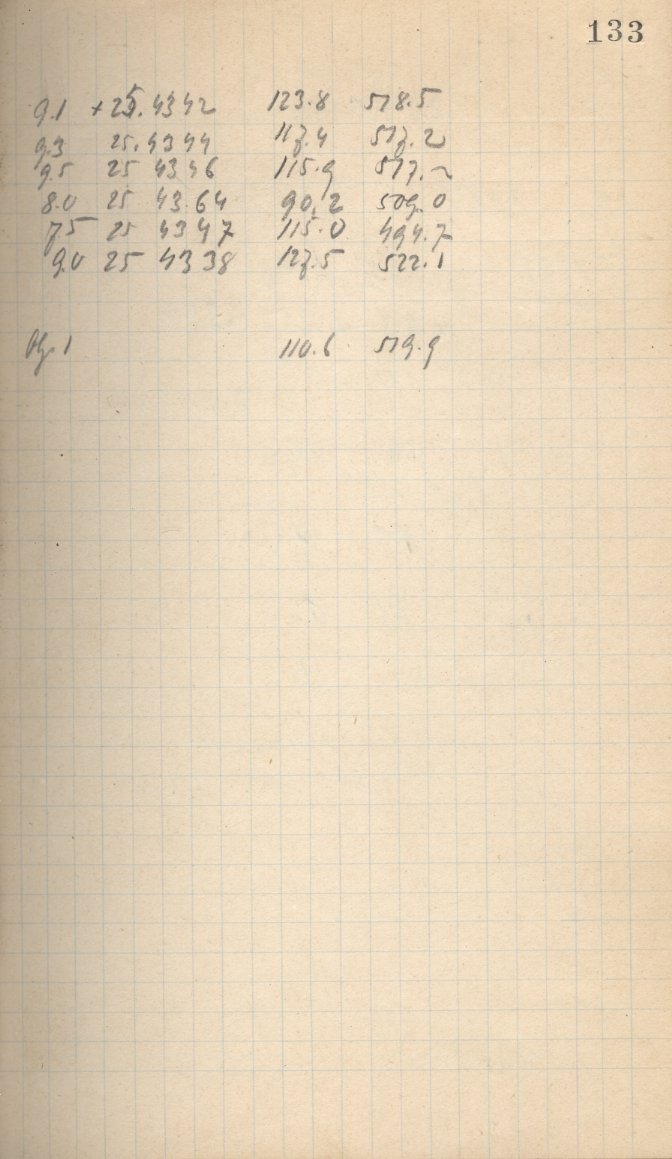 133
9.1 +25.4342 123.8 518.5
9.3 25.4344 117.4 517.2
9.5 25 4346 115.9 517.
8.0 25 43.64 90.2 509.0
7.5 25 4347 115.0 494.7
9.0 25 4338 127.5 522.1
Obj. 1 110.6 519.9